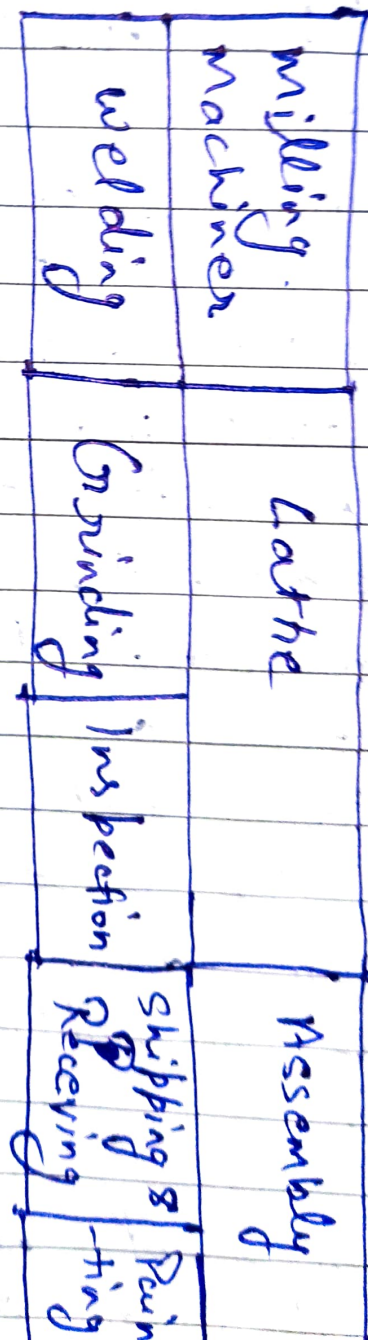 Milling
Machines
Lathe
Assembly
Welding
Grinding
Inspection
Shipping &
Receving
Pain
-ting